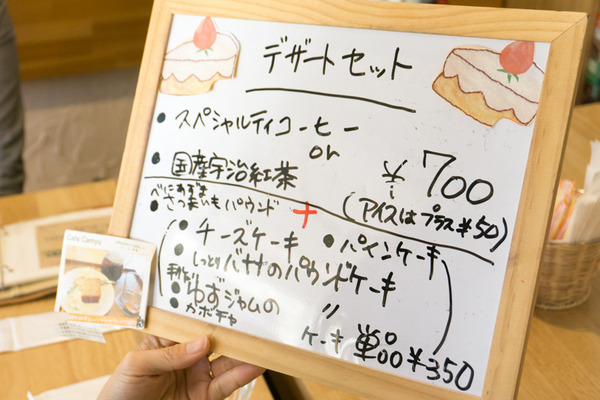 デザートセット
スペシャルティコーヒー
or
国産宇治紅茶
¥700
(アイスはプラス¥50)
+
べにあずま
さつまいもパウンド
チーズケーキ
パインケーキ
しっとりバナナのパウンドケーキ
手作り
ゆずジャムの 〃
カボチャ
ケーキ 単品 ¥350
Cafe Camps